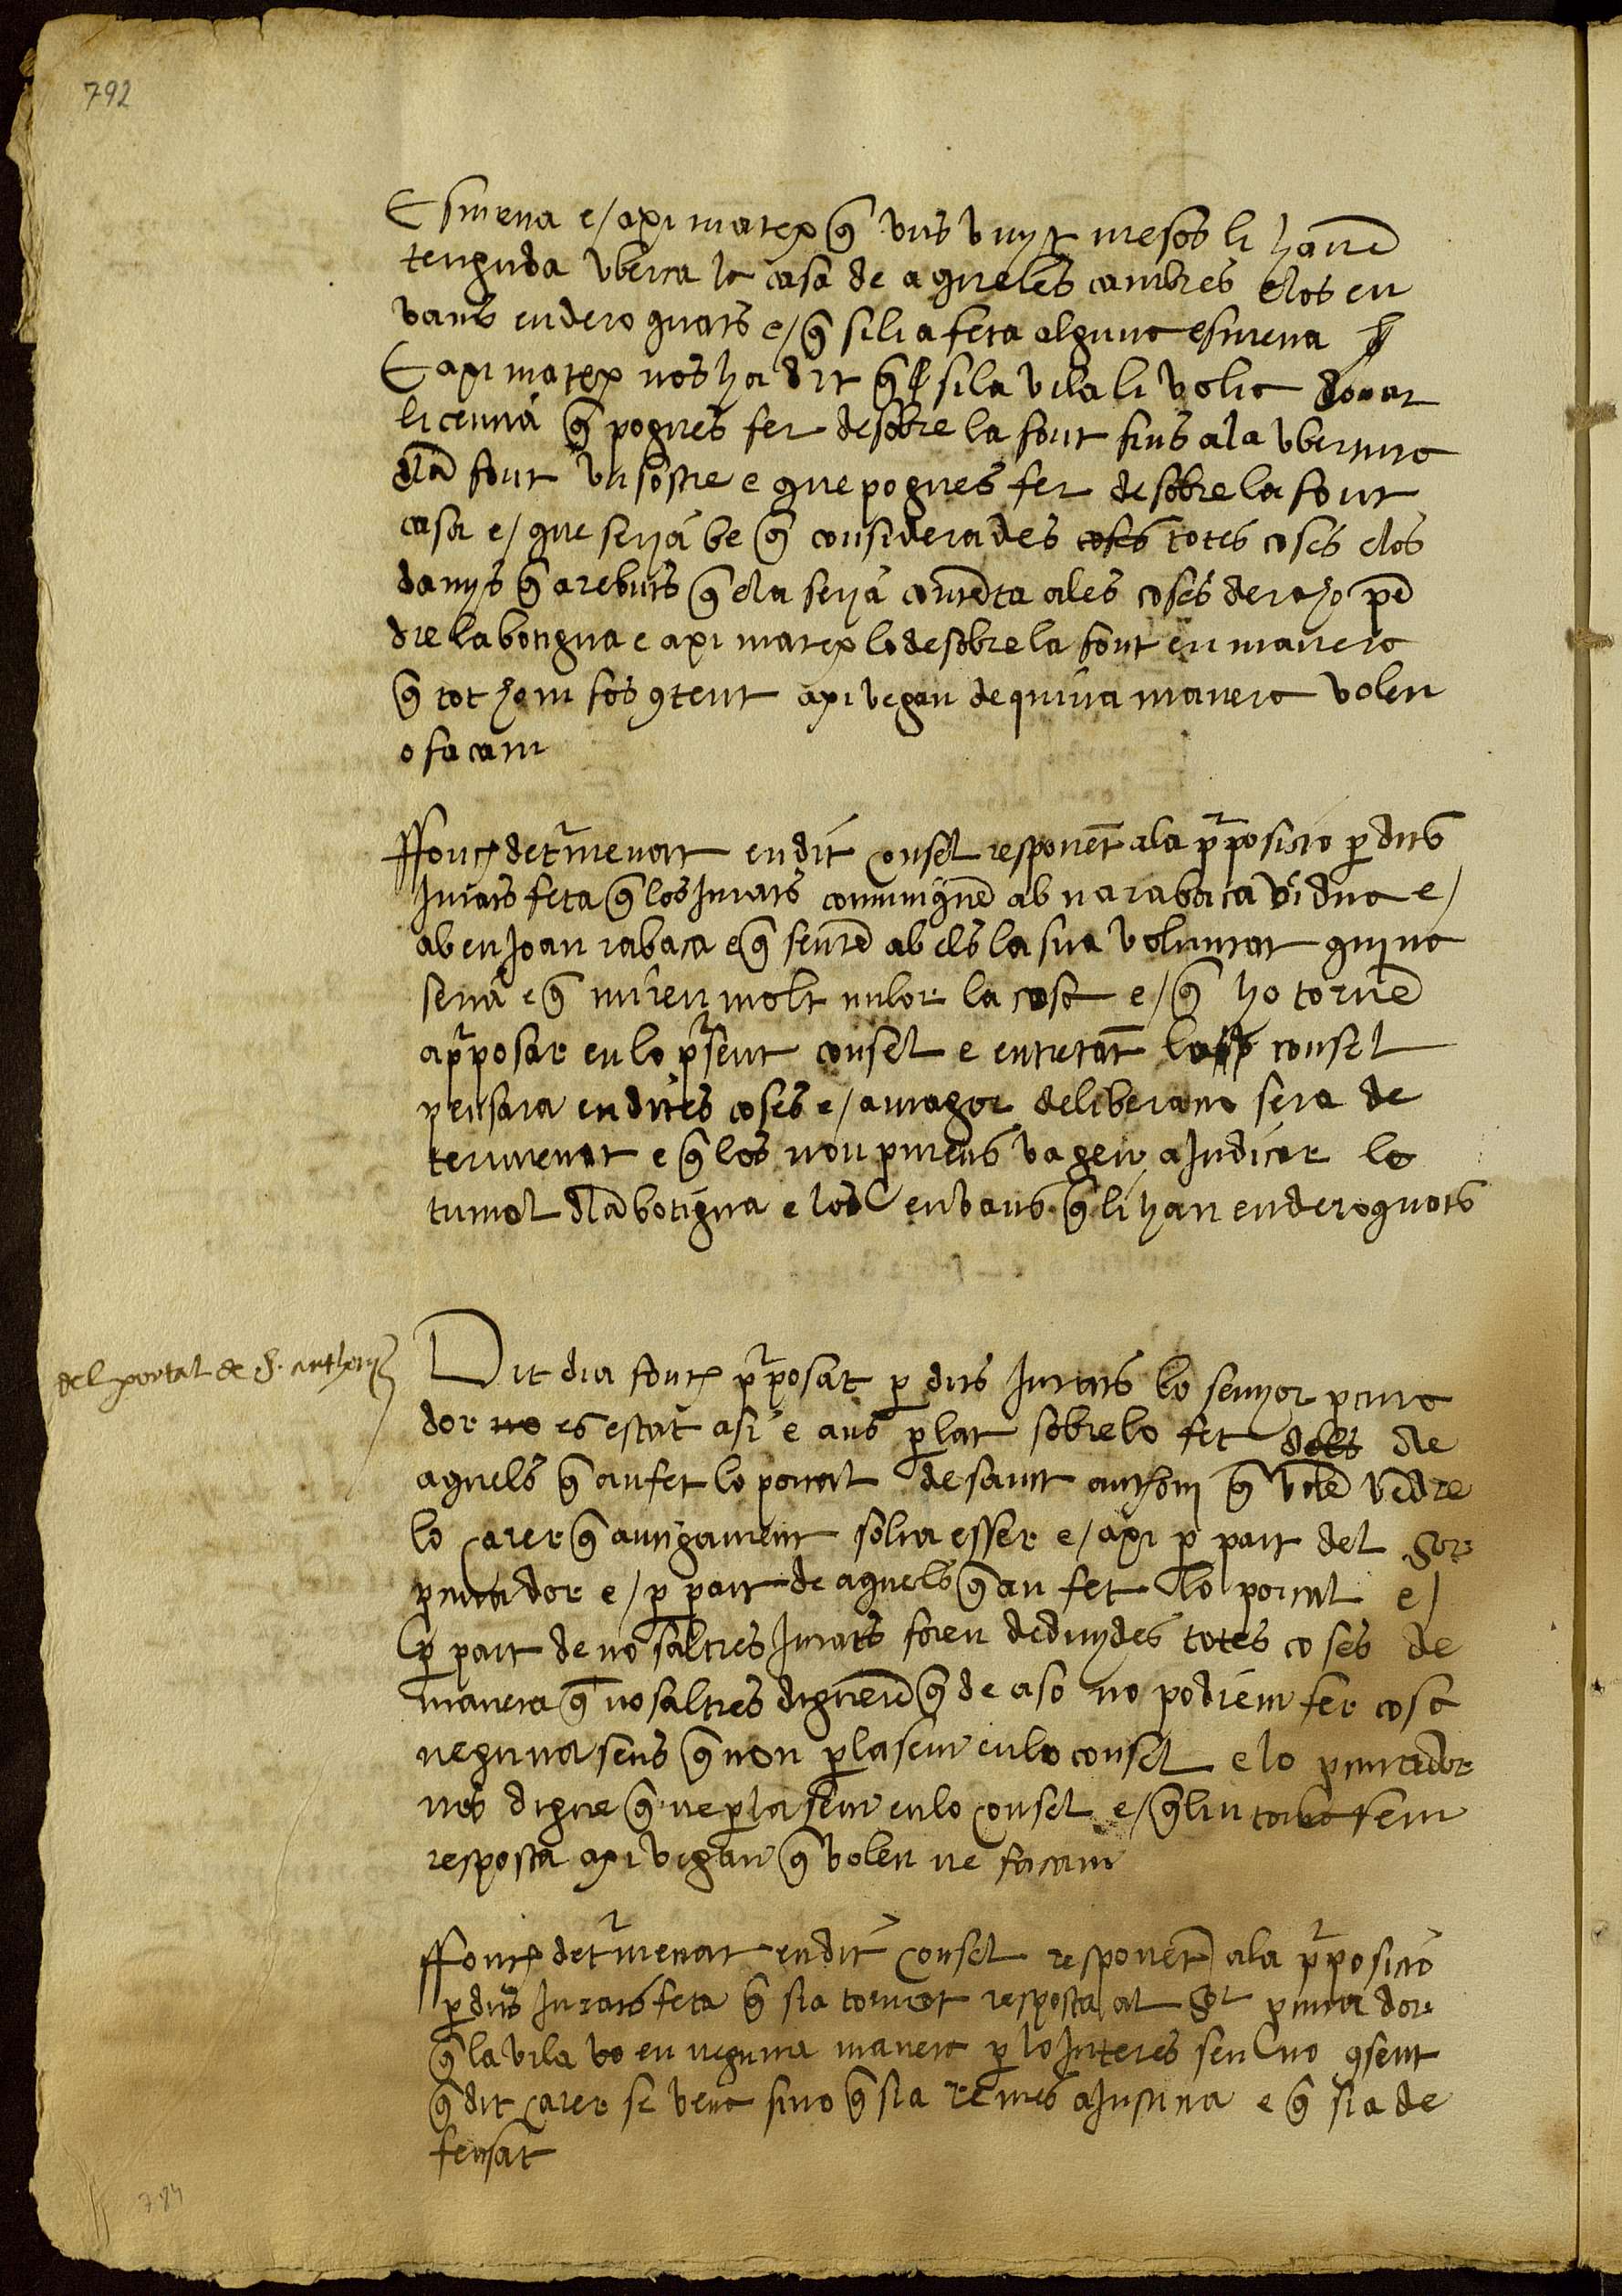 792
Esmena e/ axi matex q̃ vns vuyt mesos li hauẽ
tenguda vberta la casa de aqueles cambres elos en
vans enderoquats e/ q̃ sili a feta alguna esmena
E axi matex nos ha dit q̃ sila vila li volia donar
licencia q̃ pogues fer desobre la font fins ala vbertura
dla font vn sostre e que pogues fer desobre la font
casa e/ que serja be q̃ considerades coses totes coses elos
danys q̃ a rebuts q̃ ela serja contẽta ales coses de raho pẽ
dre la botigua e axi matex lo desobre la font en manera
q̃ tot hom fos 9tent axi vegen de quina manera volen
o facam
Ffonch detr̃menat en dit consel responẽt ala p̃posicio p̱ dits
Jurats feta q̃ los Jurats comuniquẽ ab na rabaca viduc e/
ab en Joan rabaca e q̃ sentẽ ab els la sua voluntat quina
sera e q̃ miren molt milor la cosa e/ q̃ ho tornẽ
ap̃posar en lo p̃sent consel e entretãt lo consel
pensara en dites coses e/ a maior deliberacio sera de
termenat e q̃ los nou p̱mens vagen a Judicar lo
tumol dla botigua e los envans q̃ li han enderoquats
del portal de S. anthonj
Dit dia fonch p̃posat p̱ dits Jurats lo senyor p̱cura
dor no es estat asi e ans p̱lat sobre lo fet dels de
aquels q̃ an fet lo portal de sant anthonj q̃ volẽ vẽdre
lo carer q̃ antigament solia esser e/ axi p̱ part del Sor
p̱curador e/ p̱ part de aquels q̃ an fet lo portal e/
p̱ part de nosaltres Jurats foren deduydes totes coses de
manera q̃ nosaltres diguerẽ q̃ de aso no podiem fer cosa
neguna sens q̃ non p̱lasem en lo consel e lo p̱curador
nos digue q̃ ne p̱lasem en lo consel e/ q̃ lin tornasem
resposta axi vegan q̃ volen ne facam
Ffonch detr̃menat en dit consel responẽt ala p̃posicio
p̱ dits Jurats feta q̃ sia tornat resposta al Sor p̱curador
q̃ la vila no en neguna manera p̱ lo Interes seu no 9sent
q̃ dit carer se vena sino q̃ sia remes a Justicia e q̃ sia de
fensat
784